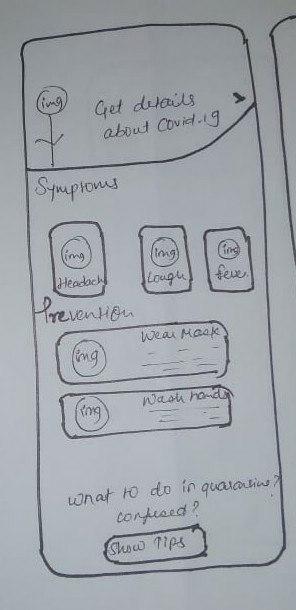 img
Get details
about Covid-19
Symptoms
img img img
Headach Cough fever
Prevention
Wear Mask
img
Wash hands
img
What to do in quarantine?
confused?
Show Tips